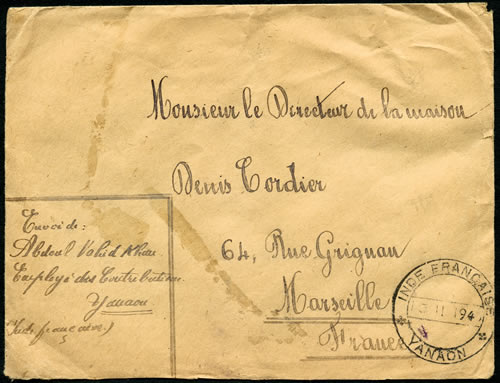 Monsieur le Directeur de la maison
Denis Cordier
64, Rue Grignan
Marseille
France
Envoi de:
Abdoul Vahid Khan
Employé des Contributions
Yanaon
(Inde française)
INDE FRANÇAISE
11 194
YANAON